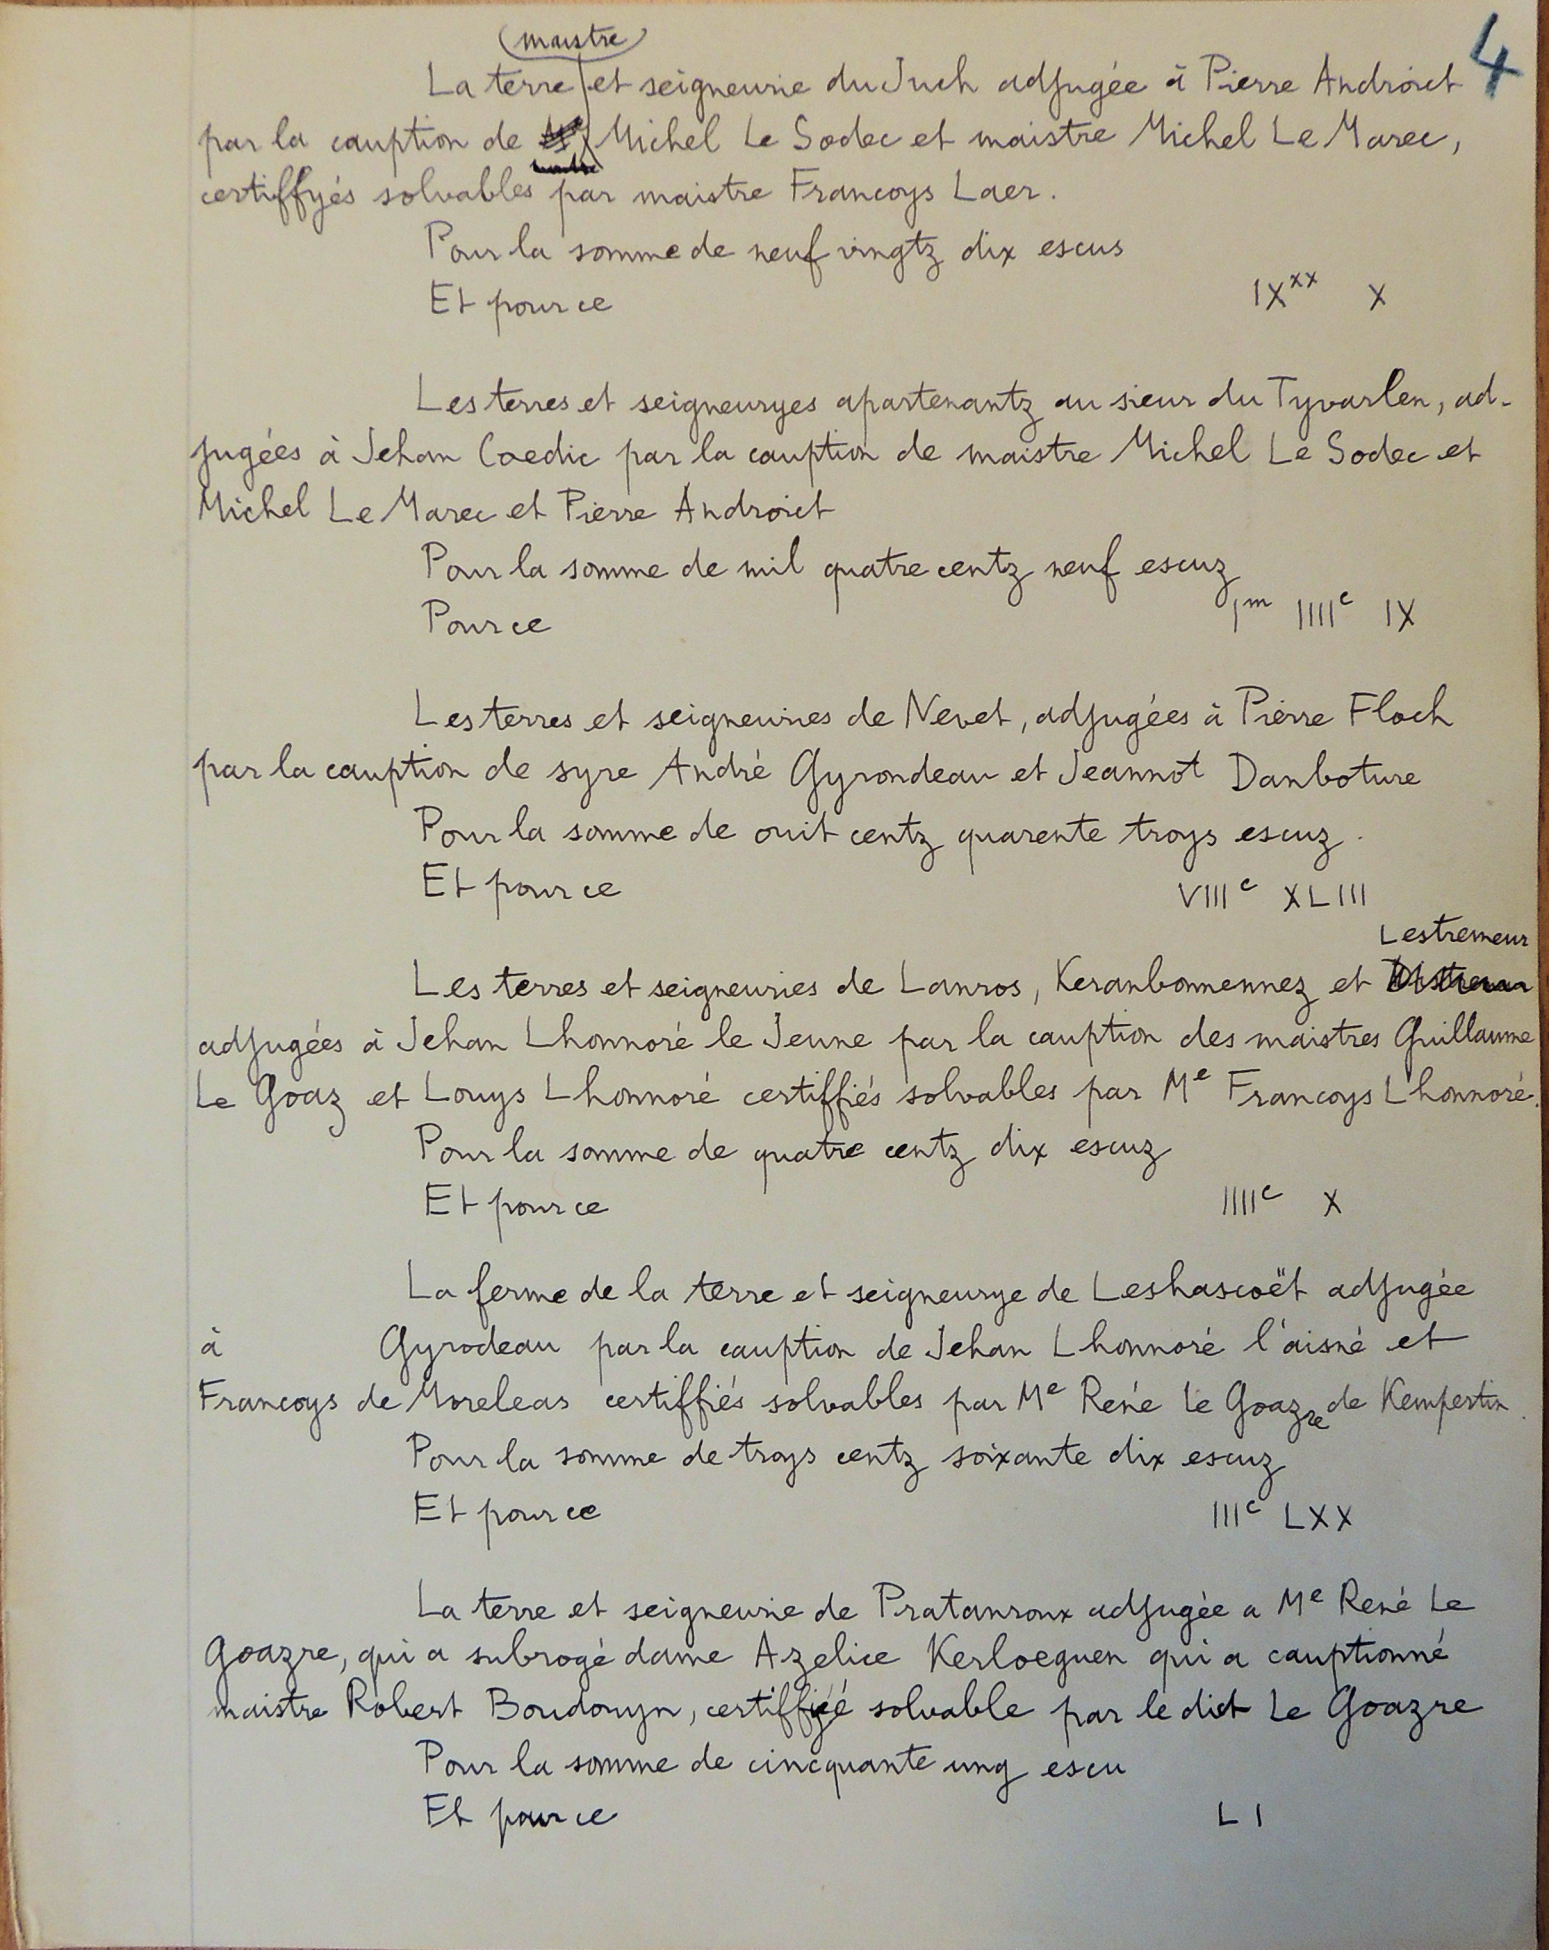 4
maistre
La terre et seigneurie du Juch adjugée à Pierre Androict
par la cauption de Michel Le Sodec et maistre Michel Le Marec,
certiffyés solvables par maistre Francoys Laer.
Pour la somme de neuf vingtz dix escus
Et pour ce IXxx X
Les terres et seigneuryes apartenantz au sieur du Tyvarlen, ad-
jugées à Jehan Coedic par la cauption de maistre Michel Le Sodec et
Michel Le Marec et Pierre Androict
Pour la somme de mil quatre centz neuf escuz
Pour ce Im IIIIc IX
Les terres et seigneuries de Nevet, adjugées à Pierre Floch
par la cauption de syre André Gyrondeau et Jeannot Danboture
Pour la somme de ouit centz quarente troys escuz.
Et pour ce VIIIc XLIII
Lestremeur
Les terres et seigneuries de Lanros, Keranbonnennez et
adjugées à Jehan Lhonnoré le Jeune par la cauption des maistres Guillaume
Le Goaz et Louys Lhonnoré certiffiés solvables par Me Francoys Lhonnoré.
Pour la somme de quatre centz dix escuz
Et pour ce IIIIc X
La ferme de la terre et seigneurye de Leshascoët adjugée
à Gyrodeau par la cauption de Jehan Lhonnoré l'aisné et
Francoys de Moreleas certiffiés solvables par Me René Le Goazre de Kempertin.
Pour la somme de troys centz soixante dix escuz
Et pour ce IIIc LXX
La terre et seigneurie de Pratanroux adjugée a Me René Le
Goazre, qui a subrogé dame Azelice Kerloeguen qui a cauptionné
maistre Robert Boudouyn, certiffyé solvable par le dict Le Goazre
Pour la somme de cincquante ung escu
Et pour ce LI